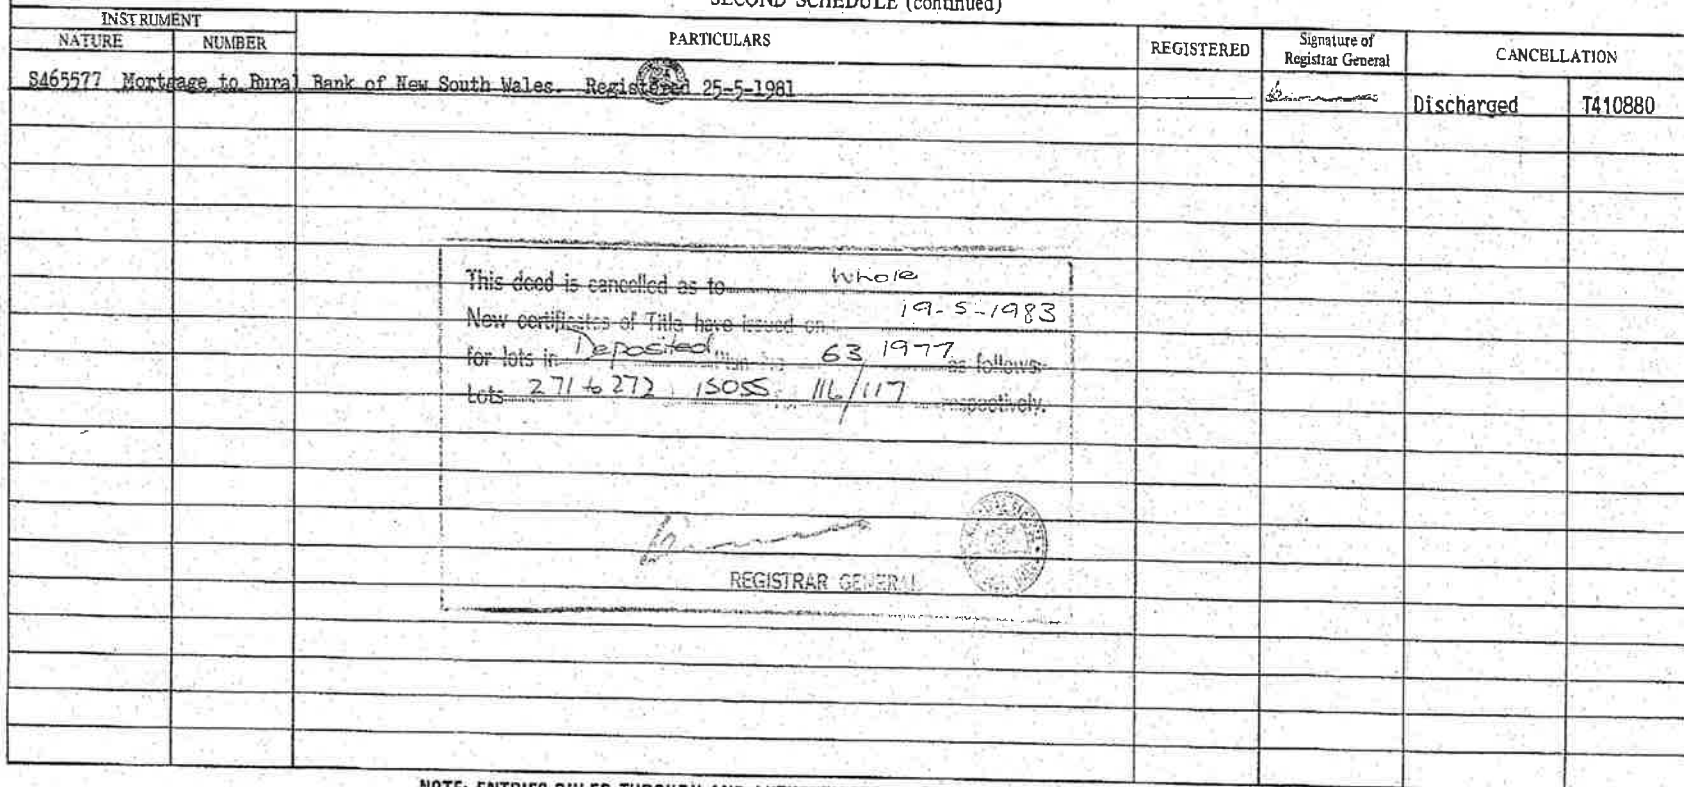 SECOND SCHEDULE (continued)
INSTRUMENT
NATURE NUMBER PARTICULARS REGISTERED Signature of Registrar General CANCELLATION
S465577 Mortgage to Rural Bank of New South Wales. Registered 25-5-1981 Discharged T410880
This deed is cancelled as to whole
New certificates of Title have issued on 19-5-1983
for lots in Deposited Plan No 631977 as follows:
Lots 271 to 272 15055 116/117 respectively.
REGISTRAR GENERAL
NOTE: ENTRIES RULED THROUGH AND